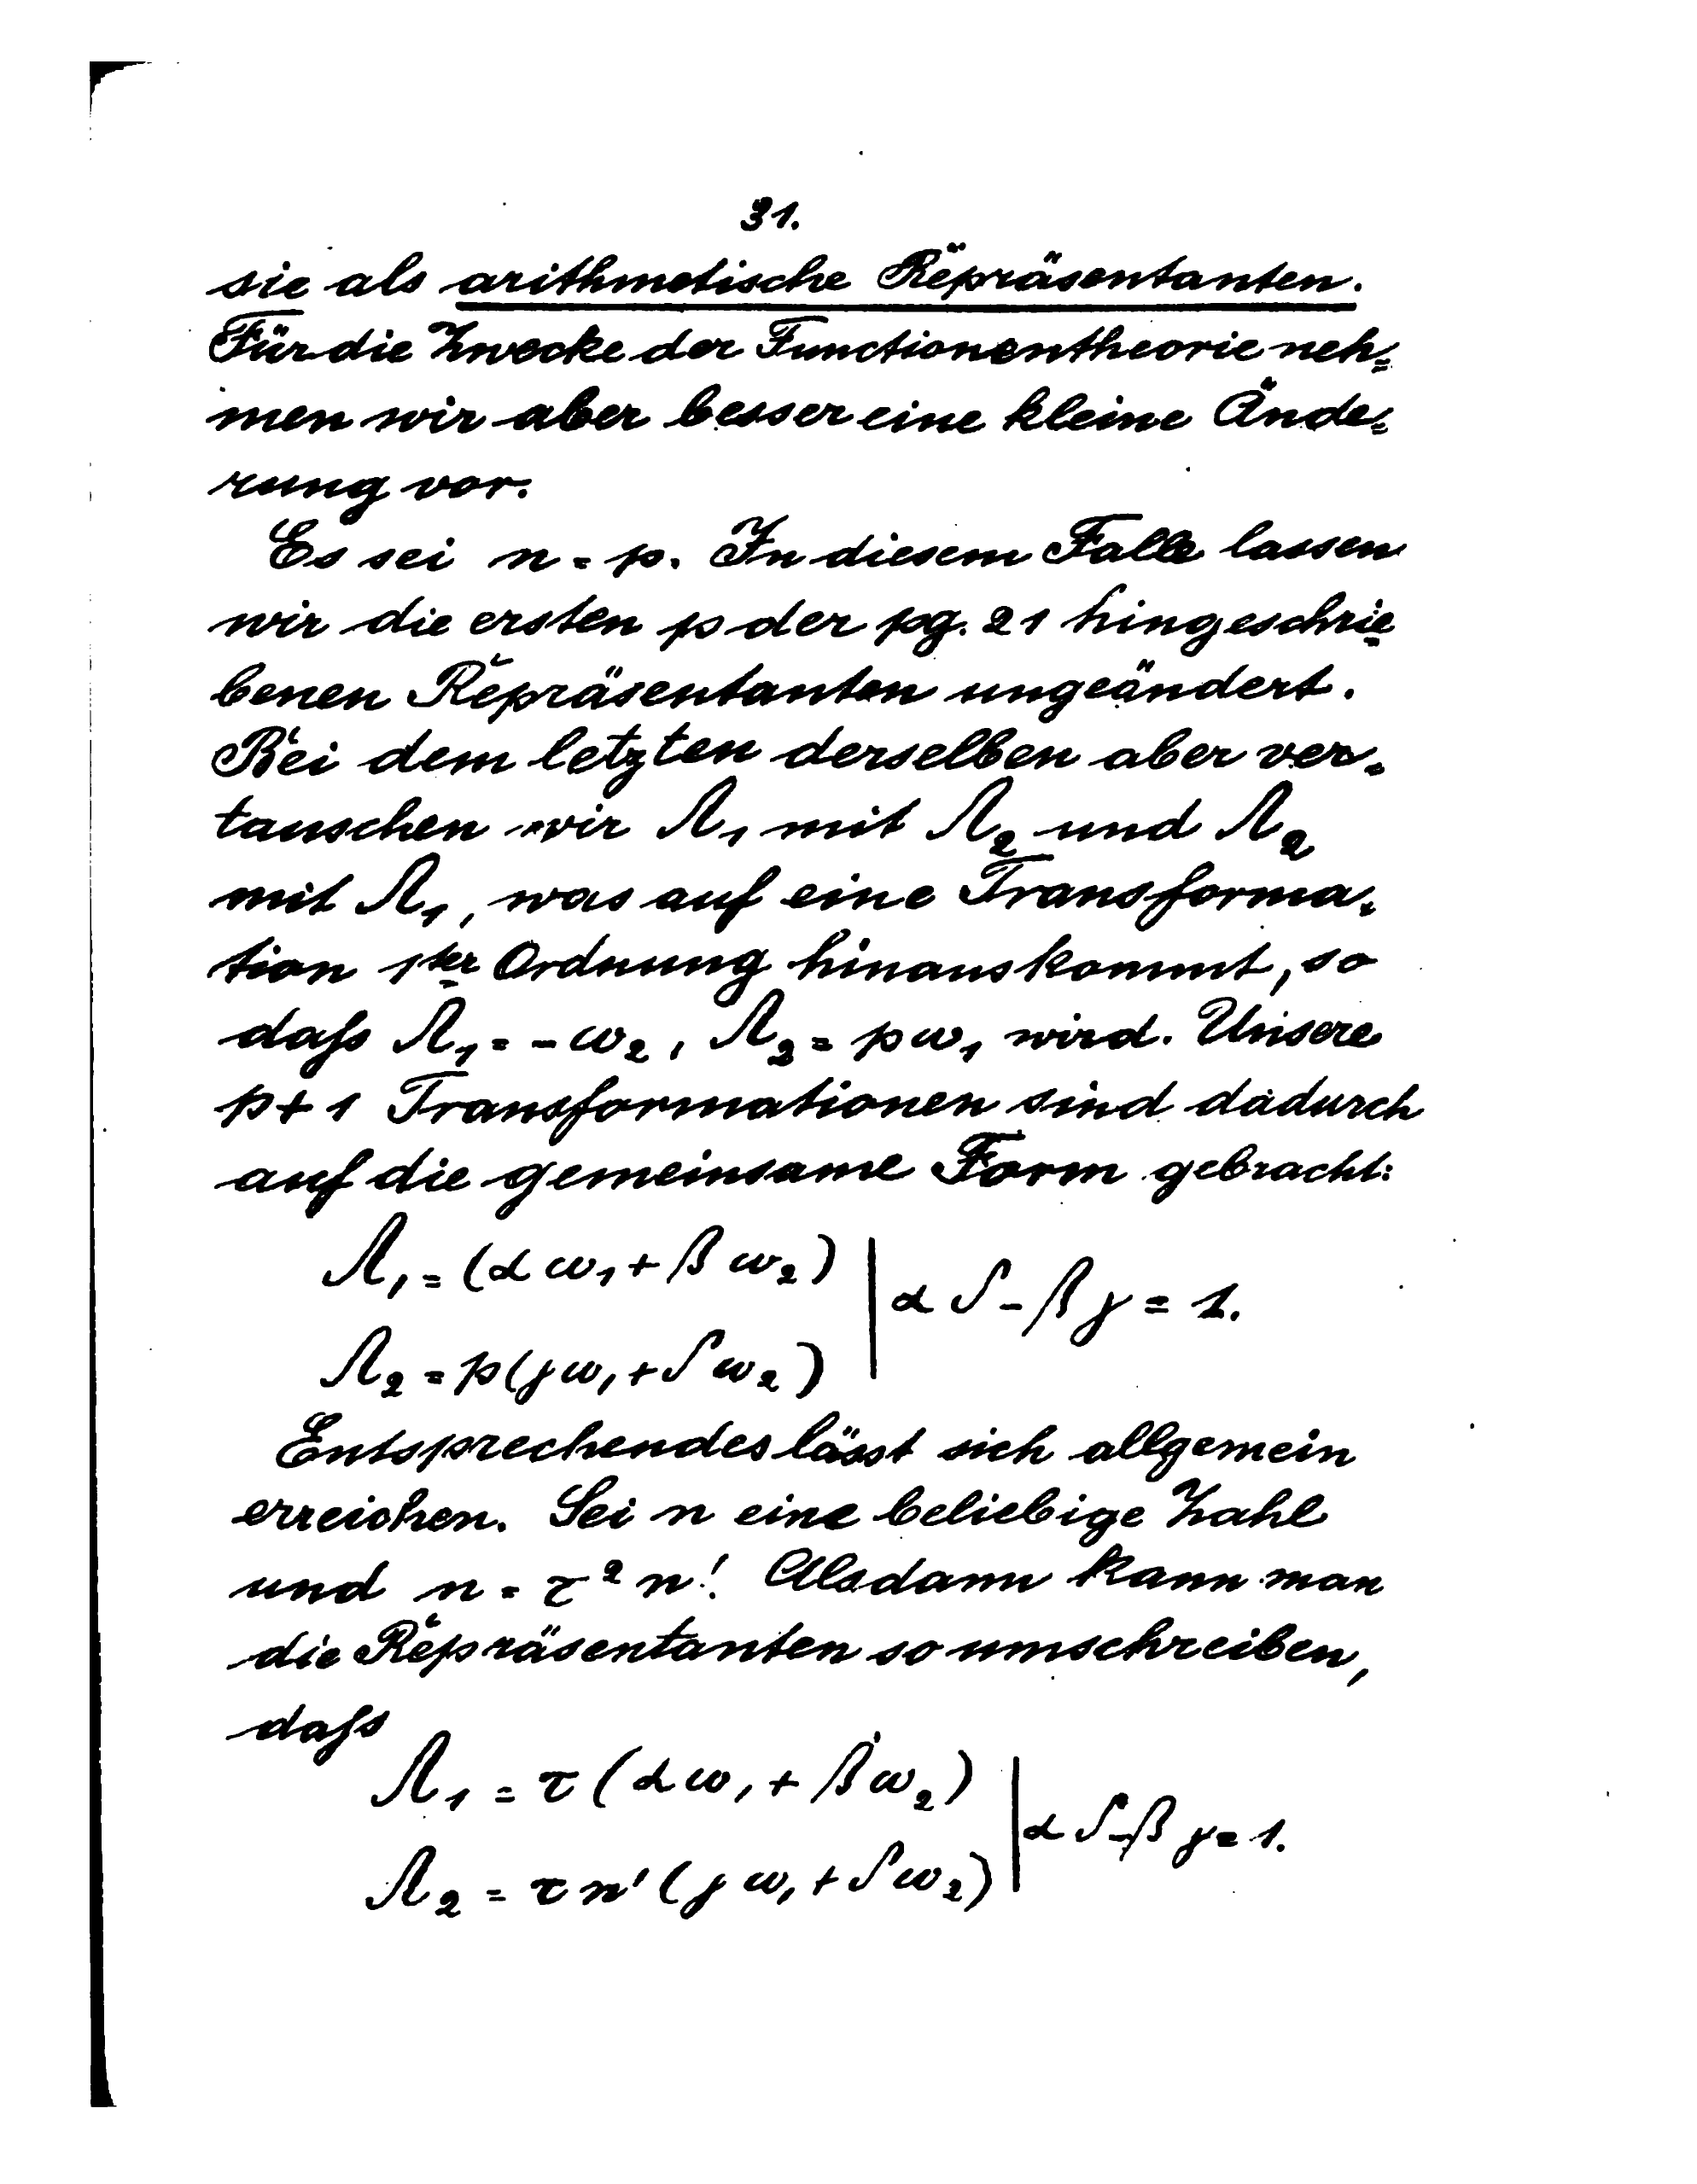 31.
sie als arithmetische Repräsentanten.
Für die Zwecke der Functionentheorie neh=
men wir aber besser eine kleine Ände=
rung vor.
Es sei n = p. In diesem Falle lassen
wir die ersten p der pg. 21 hingeschrie=
benen Repräsentanten ungeändert.
Bei dem letzten derselben aber ver=
tauschen wir Λ₁ mit Λ₂ und Λ₂
mit Λ₁, was auf eine Transforma=
tion 1ter Ordnung hinauskommt, so
daſs Λ₁ = -ω₂, Λ₂ = pω₁ wird. Unsere
p+1 Transformationen sind dadurch
auf die gemeinsame Form gebracht:
Λ₁ = (αω₁ + βω₂)
αδ - βγ = 1.
Λ₂ = p(γω₁ + δω₂)
Entsprechendes lässt sich allgemein
erreichen. Sei n eine beliebige Zahl
und n = τ²n'. Alsdann kann man
die Repräsentanten so umschreiben,
daſs
Λ₁ = τ(αω₁ + βω₂)
αδ - βγ = 1.
Λ₂ = τn'(γω₁ + δω₂)